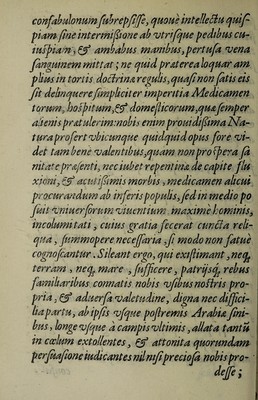 confabulonum subrepsisse, quouè intellectu quis-
piam sine intermißione ab vtrisque pedibus cu-
iuspiam, & ambabus manibus, pertusa vena
sanguinem mittat; ne quid praterea loquar am
plius in tortis doctrinæ regulis, quasi non satis eis
sit delinquere simpliciter imperitia Medicamen
torum, hospitum, & domesticorum, quæ semper
a senis pratulerim: nobis enim prouidissima Na-
tura prosert vbicunque quidquid opus fore vi-
det tam benè valentibus, quam non prospera sa
nitate præsenti, nec iubet repentinæ de capite flu
xioni, & acutissimis morbis, medicamen alicui
procurandum ab inferis populis, sed in medio po
suit vniuersorum viuentium maximè hominis,
incolumitati, cuius gratia fecerat cuncta reli-
qua, summopere necessaria, si modo non fatuè
cognoscantur. Sileant ergo, qui existimant, neq,
terram, neq, mare, sufficere, patrijsq, rebus
familiaribus connatis nobis vsibus nostris pro-
pria, & aduersa valetudine, digna nec diffici-
lia partu, ab ipsis vsque postremis Arabiæ sini-
bus, longe vsque à campis vltimis, allata tantũ
in cœlum extollentes, & attonita quorundam
persuasione iudicantes nil nisi preciosa nobis pro-
desse;